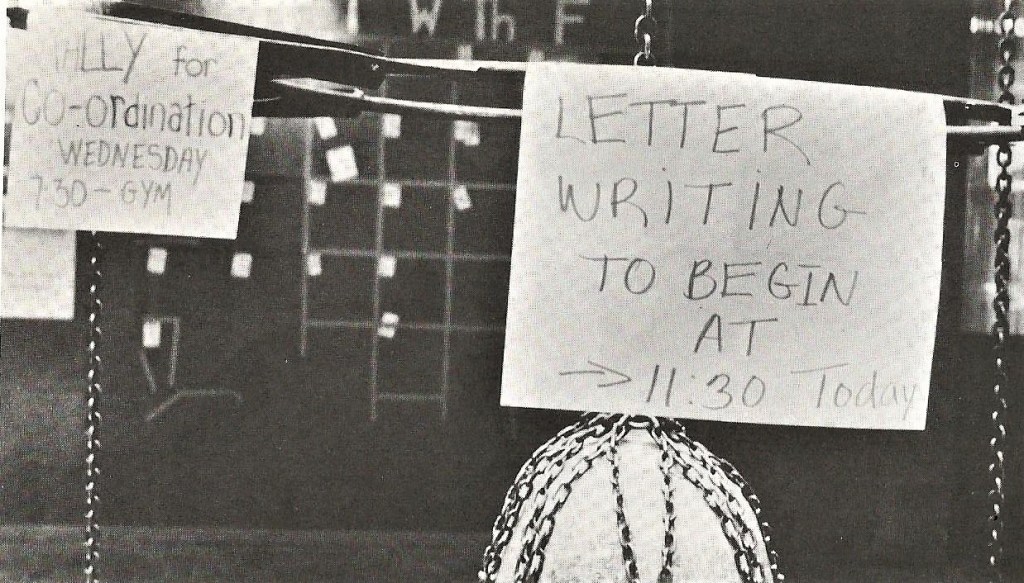 W Th F
for
Co-ordination
WEDNESDAY
7:30 - GYM
LETTER
WRITING
TO BEGIN
AT
→ 11:30 Today